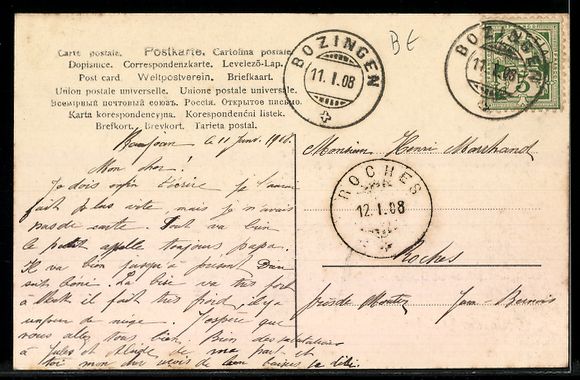 BE
Carte postale. Postkarte. Cartolina postale.
Dopisnice. Correspondenzkarte. Levelező-Lap.
Post card. Weltpostverein. Briefkaart.
Union postale universelle. Unione postale universale.
Всемірный почтовый союзъ. Россія. Открытое письмо.
Karta korespondencyjna. Korespondenční listek.
Brefkort. Brevkort. Tarjeta postal.
BOZINGEN
11.I.08
BOZINGEN
11.I.08
5
ROCHES
12.I.08
le 11 Janv. 1908.
Mon cher!
Je dois enfin t'écrire je t'aurai
fait plus vite mais je n'avais
pas de carte. Tout va bien
le petit appelle toujours papa.
Il va bien jusqu'à présent Dieu
soit béni. La bise va très fort
à il fait très froid, il y a
un four de neige. J'espère que
vous allez tous bien. Bien des salutations
à Jules et de ma part et
toi mon cher de bien baisers ta Lili.
Monsieur Henri Marchand
Roches
près de Moutier Jura-Bernois